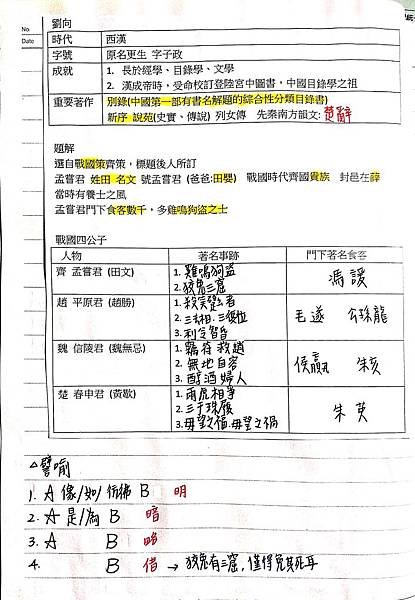 No
Date
劉向
時代 西漢
字號 原名更生 字子政
成就 1. 長於經學、目錄學、文學
2. 漢成帝時，受命校訂登陸宮中圖書，中國目錄學之祖
重要著作 別錄(中國第一部有書名解題的綜合性分類目錄書)
新序 說苑(史實、傳說) 列女傳 先秦南方韻文: 楚辭
題解
選自戰國策齊策，標題後人所訂
孟嘗君 姓田 名文 號孟嘗君 (爸爸:田嬰) 戰國時代齊國貴族 封邑在薛
當時有養士之風
孟嘗君門下食客數千，多雞鳴狗盜之士
戰國四公子
人物 著名事跡 門下著名食客
齊 孟嘗君 (田文) 1. 雞鳴狗盜 馮諼
2. 狡兔三窟
趙 平原君 (趙勝) 1. 殺笑躄者 毛遂 公孫龍
2. 三去相，三復位
3. 利令智昏
魏 信陵君 (魏無忌) 1. 竊符救趙 侯嬴 朱亥
2. 無地自容
3. 醇酒婦人
楚 春申君 (黃歇) 1. 兩虎相爭 朱英
2. 三千珠履
3. 毋望之福 毋望之禍
△譬喻
1. A 像/如/彷彿 B 明
2. A 是/為 B 暗
3. A B 略
4. B 借 → 狡兔有三窟，僅得免其死耳